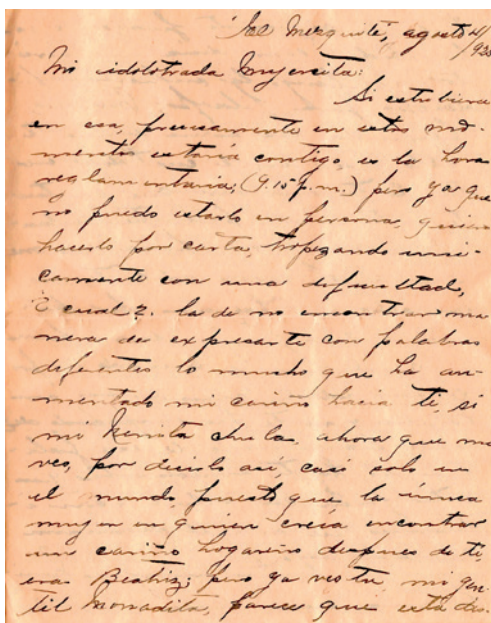 "El Mezquite", agosto 4/
932
Mi idolotrada Mujercita:
Si estubiera
en esa, precisamente en estos mo-
mentos estaría contigo, es la hora
reglamentaria; (9.15 p.m.) pero ya que
no puedo estarlo en persona, quiero
hacerlo por carta, tropezando uni-
camente con una dificultad,
¿cual?. la de no encontrar ma
nera de expresarte con palabras
diferentes lo mucho que ha au-
mentado mi cariño hacia ti, si
mi Nenita chula, ahora que me
veo, por decirlo así, casi solo en
el mundo, puesto que la única
mujer en quien creía encontrar
un cariño hogareño despues de ti,
era Beatriz; pero ya ves tu, mi gen-
til monadita, parece que está dis-